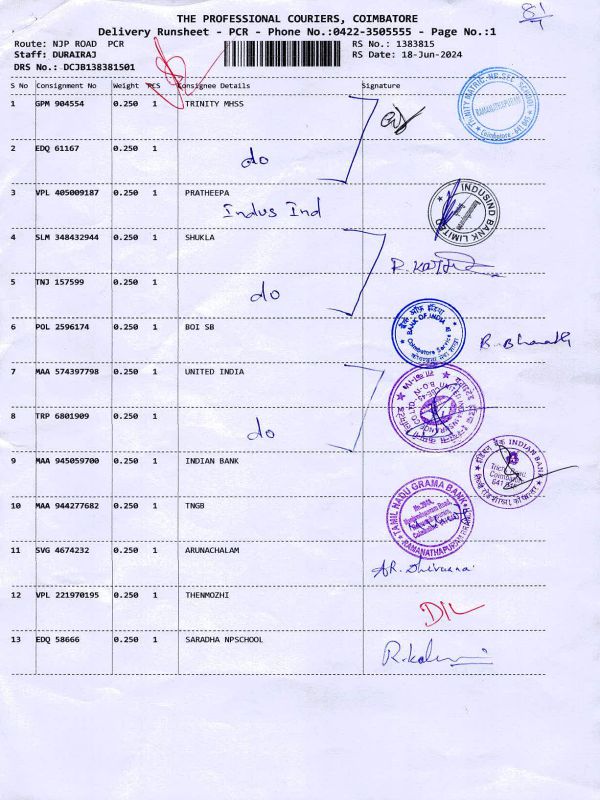 THE PROFESSIONAL COURIERS, COIMBATORE
Delivery Runsheet - PCR - Phone No.:0422-3505555 - Page No.:1
Route: NJP ROAD PCR
RS No.: 1383815
Staff: DURAIRAJ
RS Date: 18-Jun-2024
DRS No.: DCJB138381501
S No Consignment No Weight PCS Consignee Details Signature
1 GPM 904554 0.250 1 TRINITY MHSS
RAMANATHAPURAM
Coimbatore - 641 045
2 EDQ 61167 0.250 1
do
3 VPL 405009187 0.250 1 PRATHEEPA
Indus Ind
INDUSIND BANK LIMITED
4 SLM 348432944 0.250 1 SHUKLA
5 TNJ 157599 0.250 1
do
6 POL 2596174 0.250 1 BOI SB
बैंक ऑफ इंडिया
BANK OF INDIA
B. Bharath
7 MAA 574397798 0.250 1 UNITED INDIA
8 TRP 6801909 0.250 1
do
9 MAA 945059700 0.250 1 INDIAN BANK
इंडियन बैंक INDIAN BANK
10 MAA 944277682 0.250 1 TNGB
TAMIL NADU GRAMA BANK
RAMANATHAPURAM
11 SVG 4674232 0.250 1 ARUNACHALAM
12 VPL 221970195 0.250 1 THENMOZHI
D/L
13 EDQ 58666 0.250 1 SARADHA NPSCHOOL